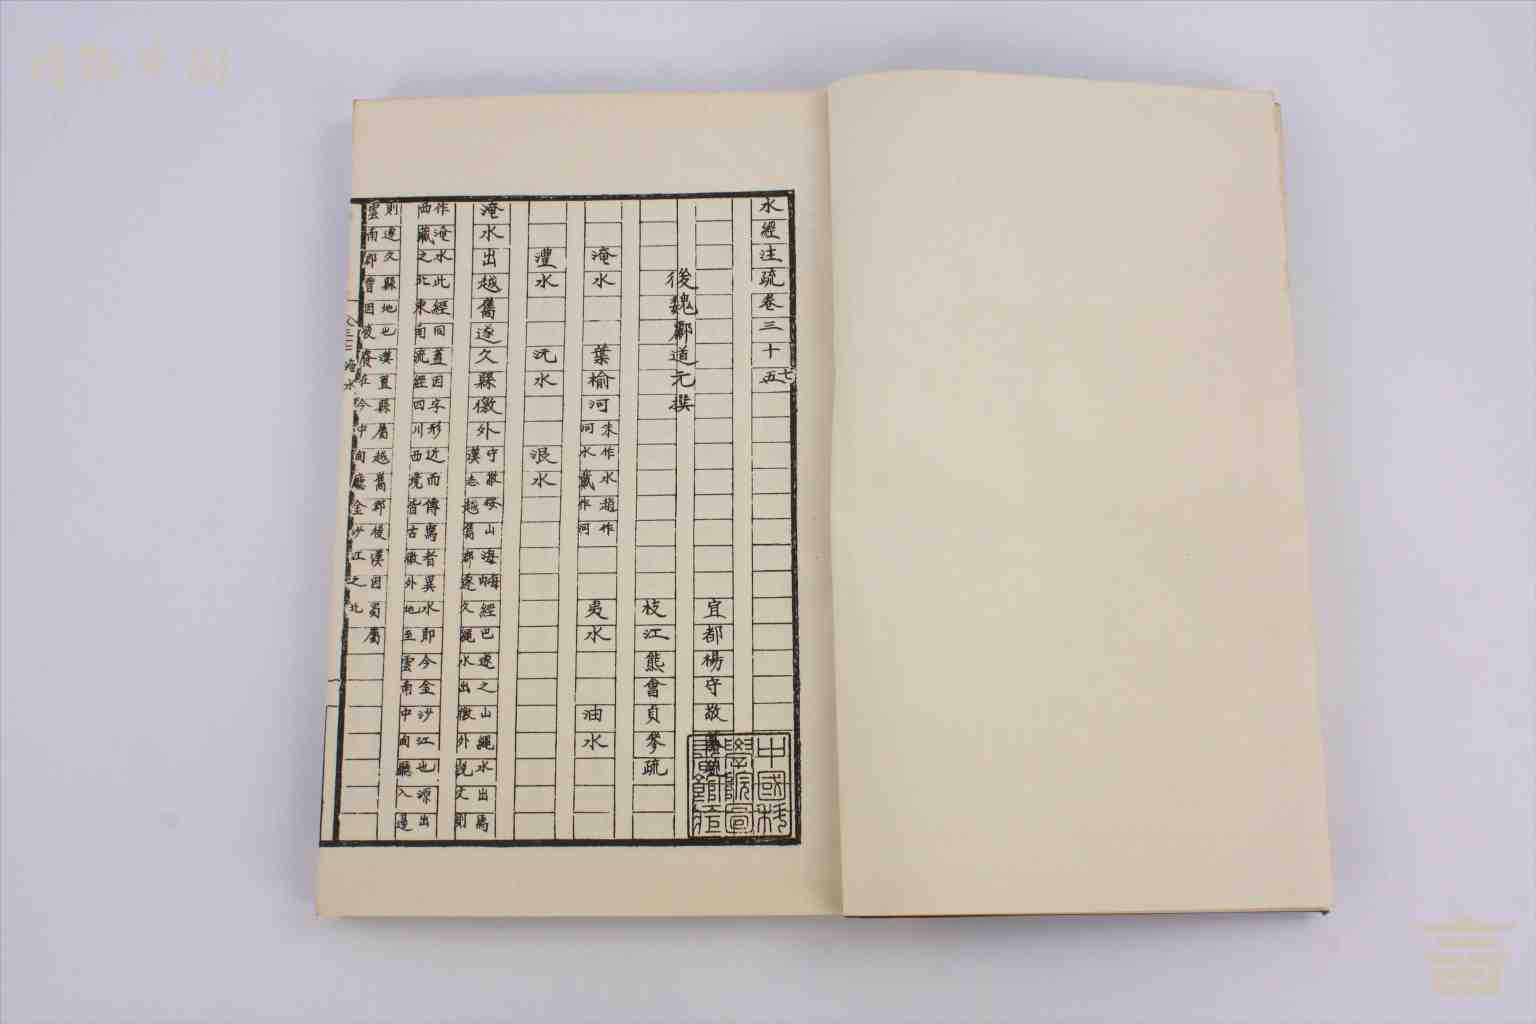 水經注疏卷三十五七
後魏酈道元撰
宜都楊守敬
枝江熊會貞參疏
淹水 葉榆河朱作水趙作河水戴作河 夷水 油水
澧水 沅水 浪水
淹水出越嶲遂久縣徼外守敬按山海海經巴遂之山繩水出焉
漢志越嶲郡遂久繩水出徼外說文則
作淹水此經同蓋因字形近而傳寫者異水即今金沙江也源出
西藏之北東南流經四川西境皆古徼外地至雲南中甸廳入邊
則遂久縣地也漢置縣屬越嶲郡後漢因蜀屬
雲南郡晉因後廢在今中甸廳金沙江之北
淹水
一
中國科
學院圖
書館藏